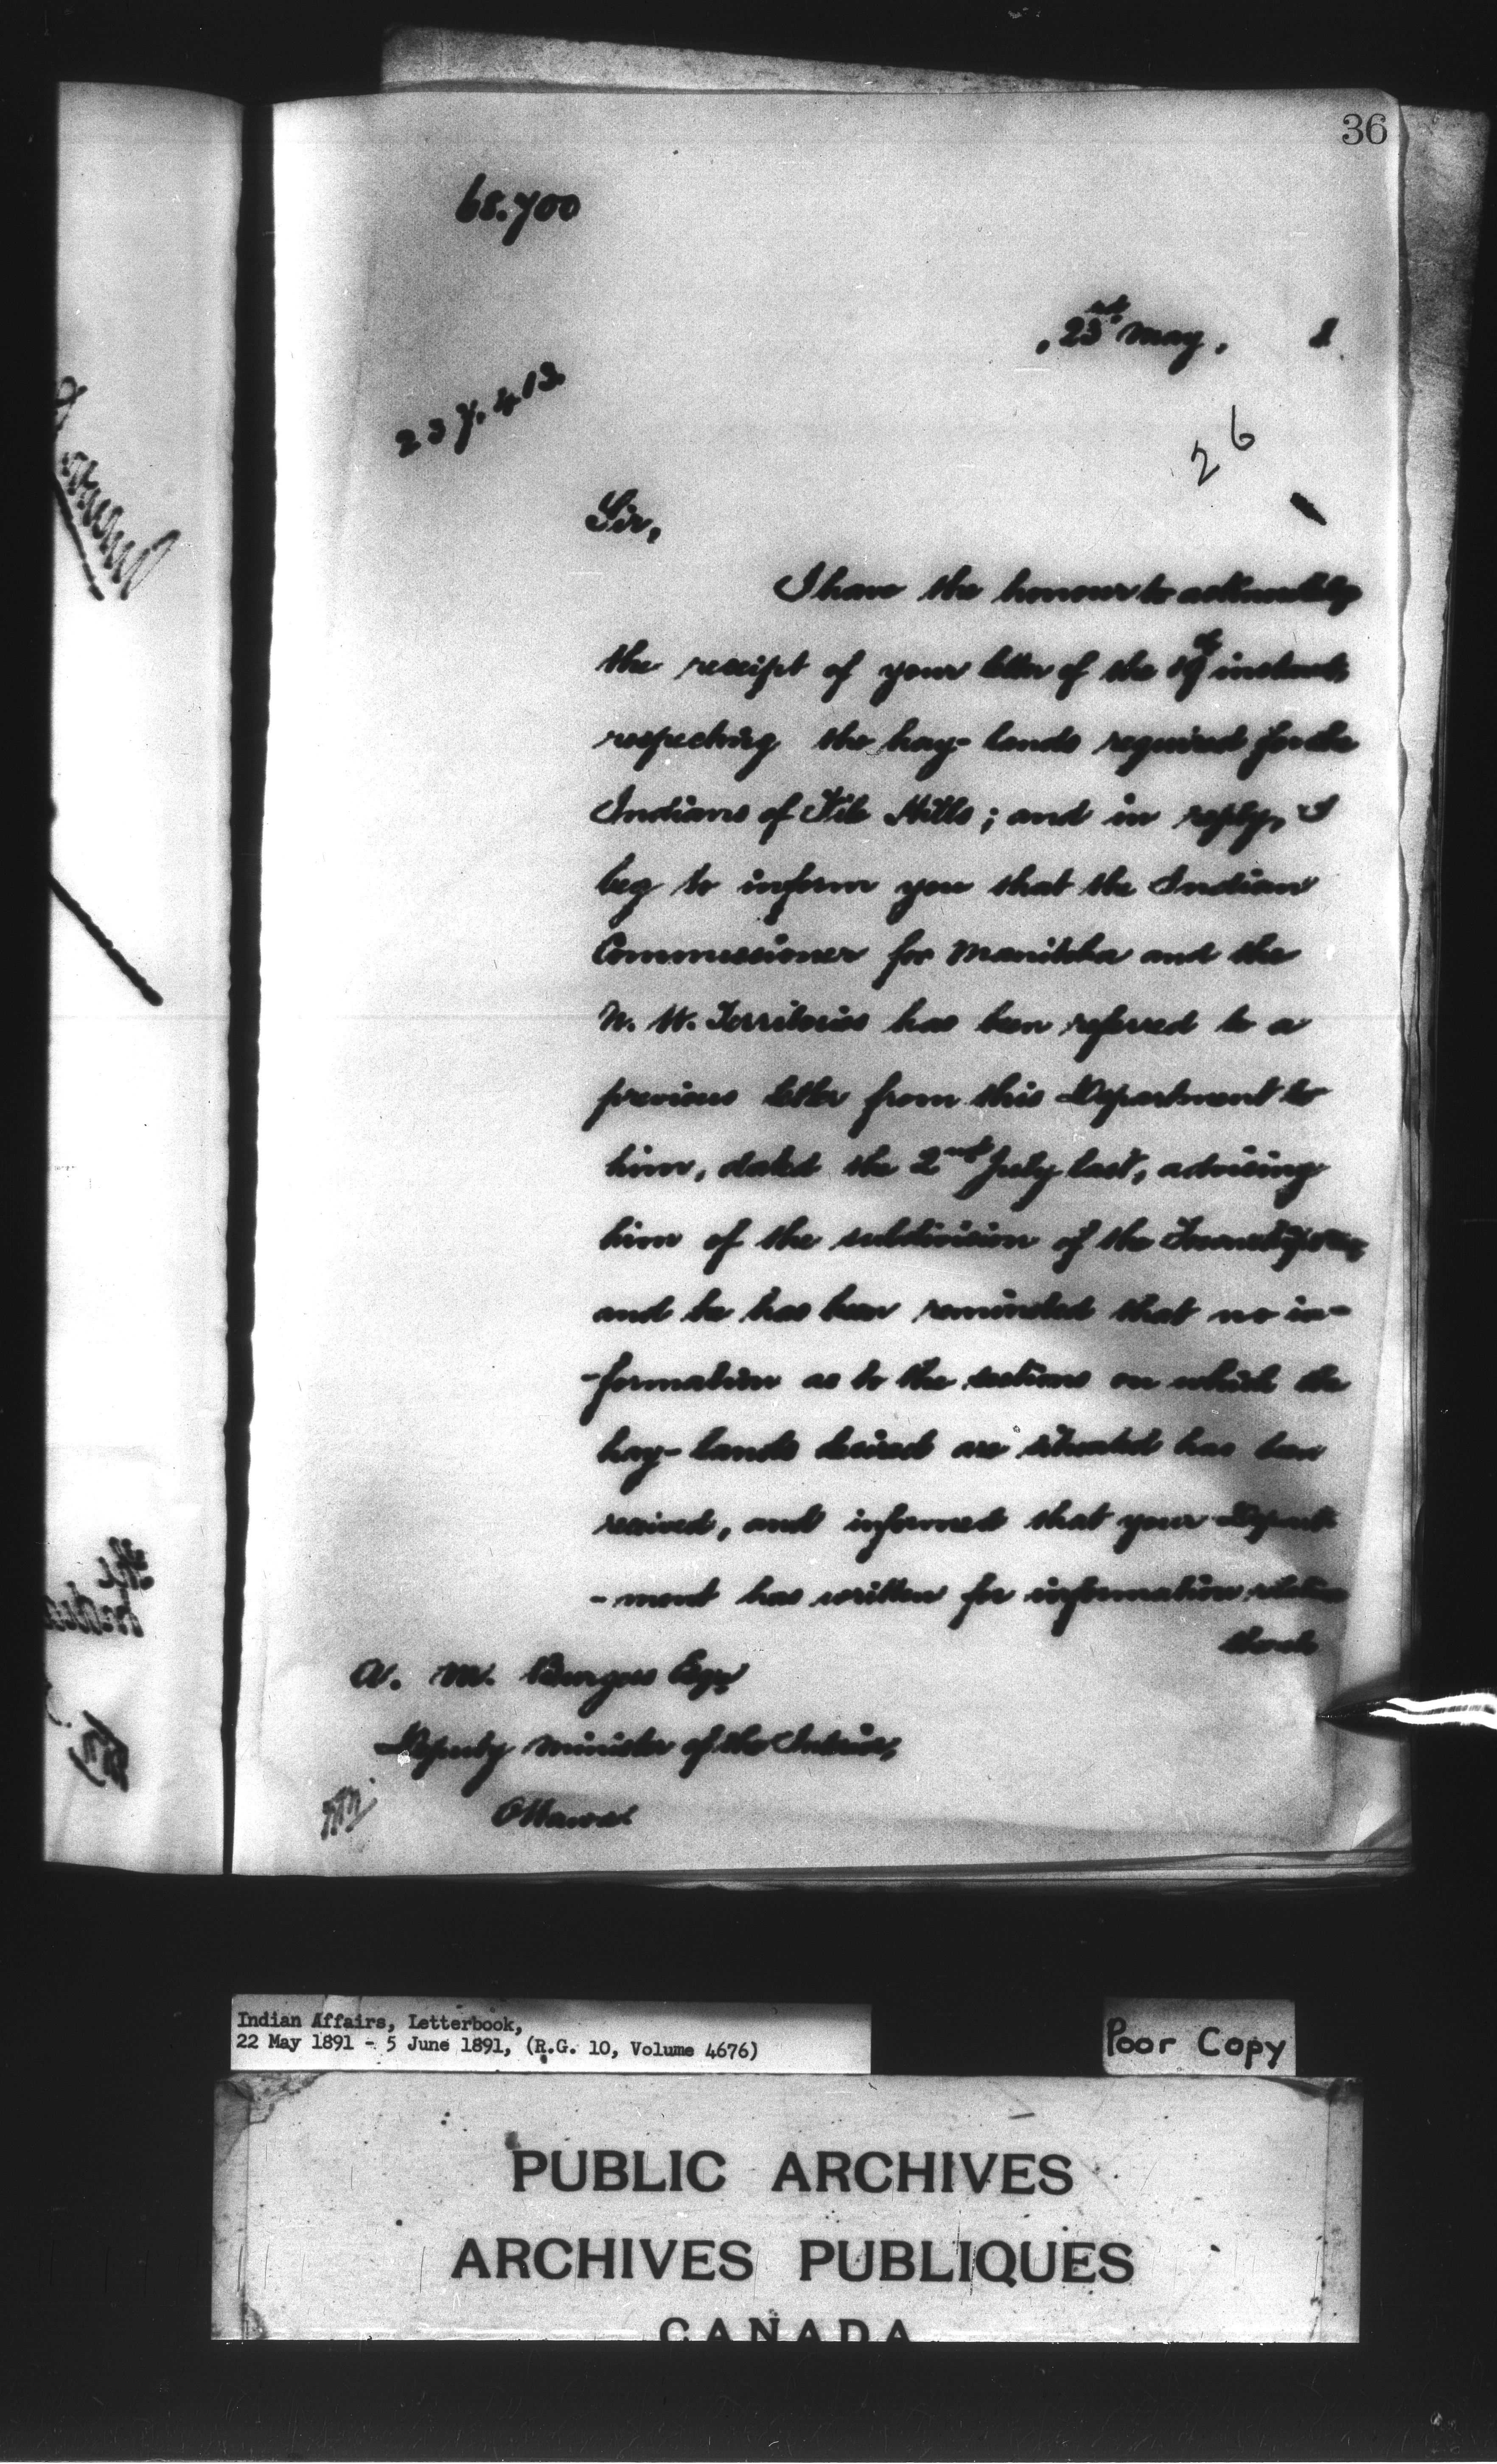 36
68.700
23rd May, 1
237.413
26
Sir,
I have the honour to acknowledge
the receipt of your letter of the 19th instant,
respecting the hay-lands required for the
Indians of File Hills; and in reply, I
beg to inform you that the Indian
Commissioner for Manitoba and the
N. W. Territories has been referred to a
previous letter from this Department to
him, dated the 2nd July last, advising
him of the subdivision of the
and he has been reminded that no in-
-formation as to the sections on which the
hay-lands desired are situated has been
received, and informed that your Depart-
-ment has written for information relative
thereto
A. M. Burgess Esqr
Deputy Minister of the Interior,
Ottawa.
Indian Affairs, Letterbook,
22 May 1891 - 5 June 1891, (R.G. 10, Volume 4676)
Poor Copy
PUBLIC ARCHIVES
ARCHIVES PUBLIQUES
CANADA